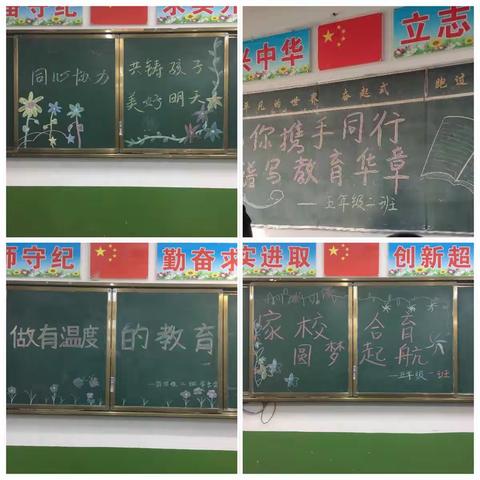 守纪
求实
同心协力
共铸孩子
美好明天
兴中华
立志
平凡的世界 奋起式
跑过
你携手同行
谱写教育华章
——五年级二班
师守纪
勤奋求
做有温度的教育
实进取
创新超
家校合育
圆梦起航
——五年级一班